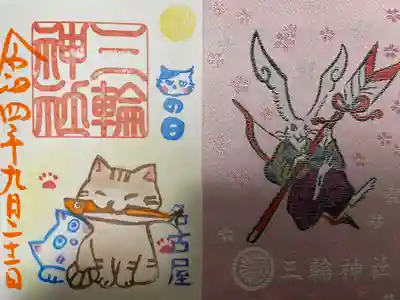 三輪
神社
の日
令和四年九月二十二日
名古屋
三輪神社